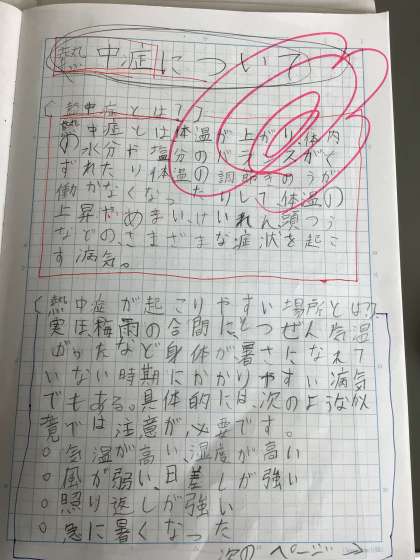 熱中症について
(熱中症とは??)
熱中症とは体温が上がり、体内
の水分や塩分のバランスがく
ずれたり体温の調節きのうが
働かなくなったりして、体温の
上昇だめまい、けいれん、頭つう
などの、さまざまな症状を起こ
す病気。
(熱中症が起こりやすい場所とは??)
実は梅雨の合間にとつぜん気温
が上がったなど身体が暑さになれて
いない時期にかかりやすい病気
でもある。具体的には、次のような
では注意が、必要です。
○気温が高い、湿度が高い
○風が弱い、日差しが強い
○照り返しが強い
○急に暑くなった
次のページへ→